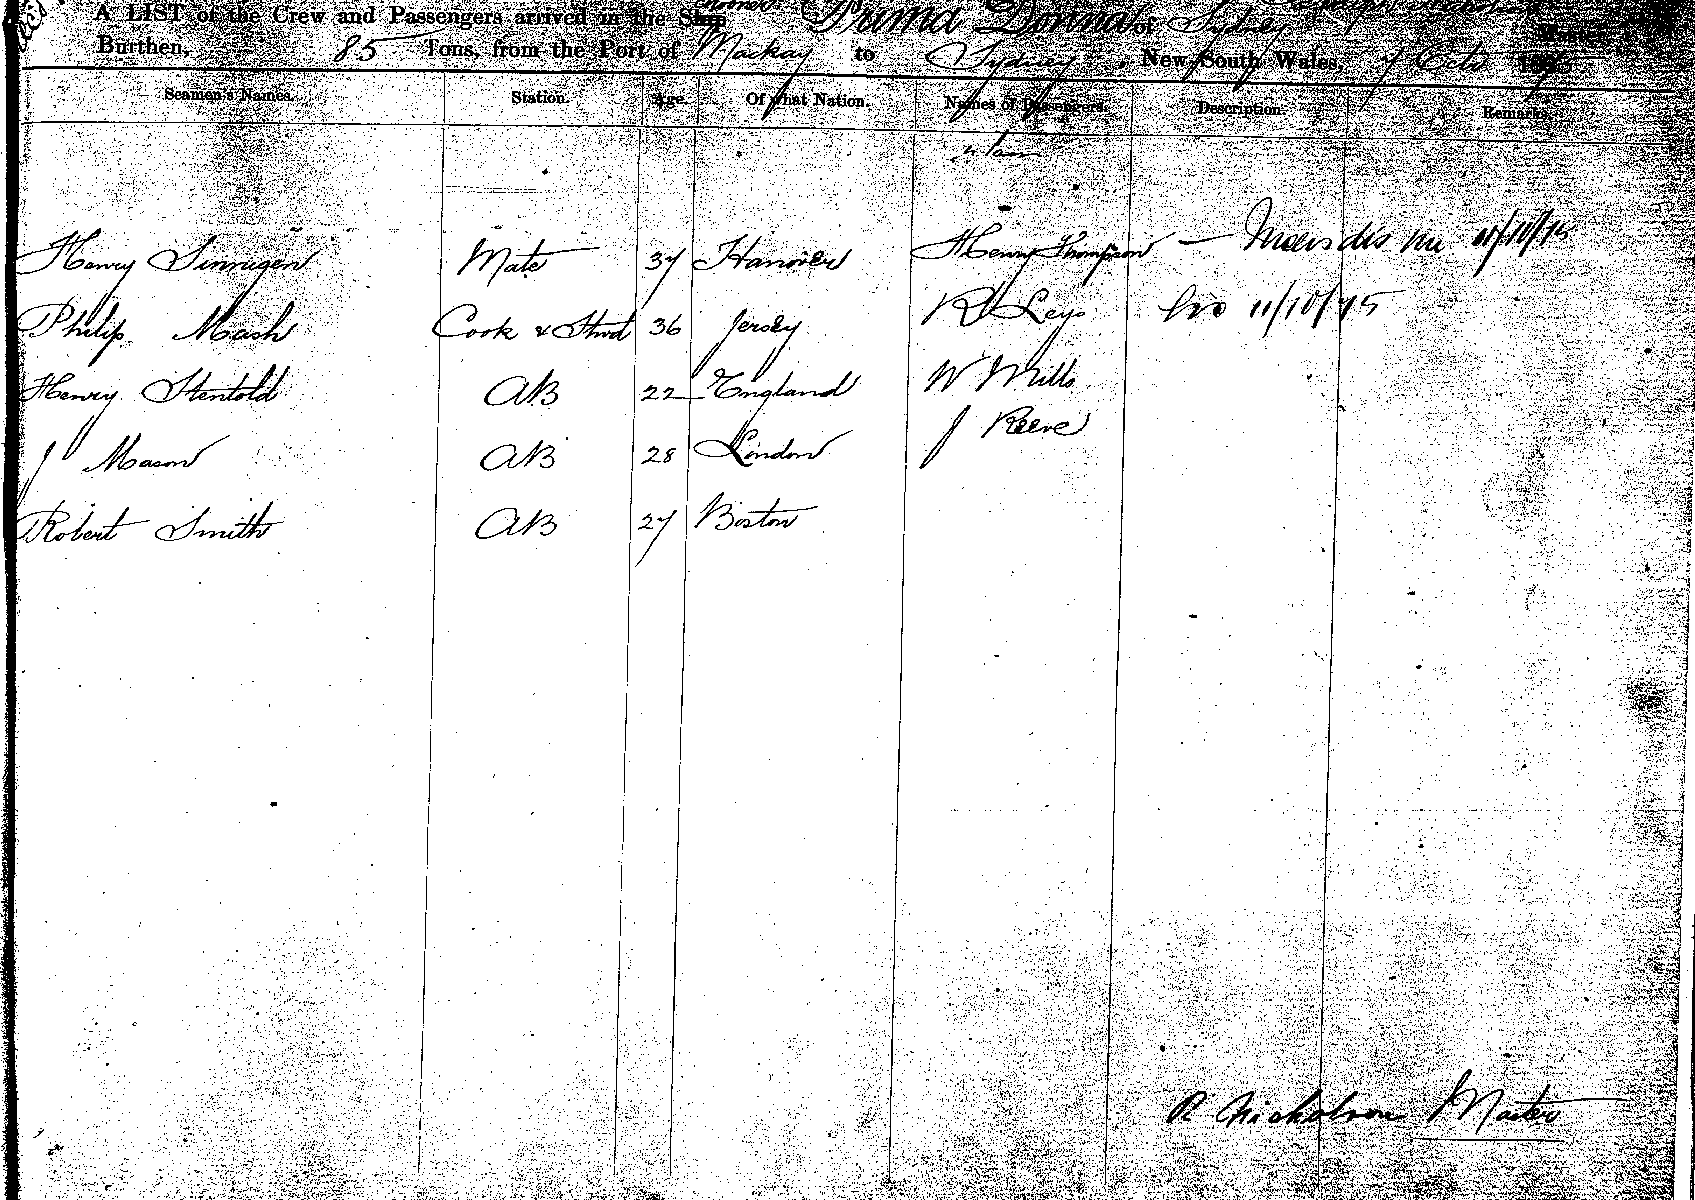 A LIST of the Crew and Passengers arrived in the Ship Prima Donna of Sydney
Burthen, 85 Tons, from the Port of Mackay to Sydney, New South Wales, 7 Octr
Seamen's Names. Station. Age. Of what Nation. Names of Passengers. Description. Remarks.
Henry Sinnigen Mate 37 Hanover Henry Thompson 11/10/75
Philip Mash Cook & Stwd 36 Jersey R Leys 11/10/75
Henry Stentold AB 22 England W Mills
J Mason AB 28 London J Reeve
Robert Smith AB 27 Boston
R Nicholson Master